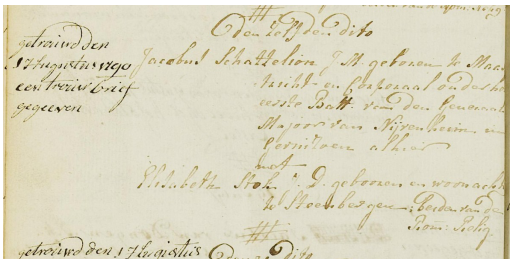 Den zelfden dito
getrouwd den
17 Augustus 1790
een trouw brief
gegeeven
Jacobus Schattelion J. M. geboren te Maas
tricht en Corporaal onder het
eerste Batt. van den Generaal
Majoor van Nijvenheim in
Gernisoen alhier
met
Elisabeth Stok J. D. geboren en woonach
te Steenbergen, beiden van de
Rom: Relig.
getrouwd den 17 Augustus
Den dito